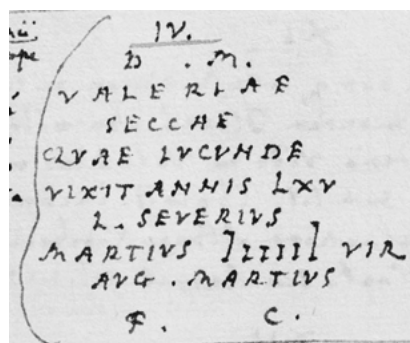 IV.
D . M.
VALERIAE
SECCHE
CLVAE IVCVNDE
VIXIT ANNIS LXV
L. SEVERIVS
MARTIVS ]IIIII[ VIR
AVG. MARTIVS
F. C.